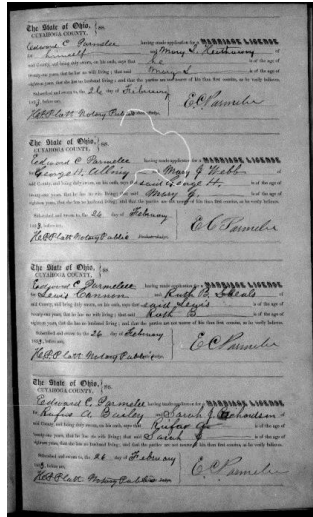 The State of Ohio,
CUYAHOGA COUNTY. } ss.
Edward C. Parmelee having made application for a MARRIAGE LICENSE
for himself and Mary S.
said County, and being duly sworn, on his oath, says that he is of the age of
twenty-one years, that he has no wife living; that said Mary S. is of the age of
eighteen years, that she has no husband living; and that the parties are not nearer of kin than first cousins, as he verily believes.
Subscribed and sworn to the 26 day of February
before me,
E C Parmelee
H E Platt Notary Public
The State of Ohio,
CUYAHOGA COUNTY. } ss.
Edward C. Parmelee having made application for a MARRIAGE LICENSE
for George H. and Mary J. Webb
said County, and being duly sworn, on his oath, says said George H. is of the age of
twenty-one years, that he has no wife living; that said Mary J. is of the age of
eighteen years, that she has no husband living; and that the parties are not nearer of kin than first cousins, as he verily believes.
Subscribed and sworn to the 26 day of February
before me,
E C Parmelee
H E Platt Notary Public
The State of Ohio,
CUYAHOGA COUNTY. } ss.
Edward C. Parmelee having made application for a MARRIAGE LICENSE
for Lewis Cannon and Ruth B.
said County, and being duly sworn, on his oath, says said Lewis is of the age of
twenty-one years, that he has no wife living; that said Ruth B is of the age of
eighteen years, that she has no husband living; and that the parties are not nearer of kin than first cousins, as he verily believes.
Subscribed and sworn to the 26 day of February
before me,
E C Parmelee
H E Platt Notary Public
The State of Ohio,
CUYAHOGA COUNTY. } ss.
Edward C. Parmelee having made application for a MARRIAGE LICENSE
for Rufus A. and Sarah J. Richardson
said County, and being duly sworn, on his oath, says that Rufus A. is of the age of
twenty-one years, that he has no wife living; that said Sarah J is of the age of
eighteen years, that she has no husband living; and that the parties are not nearer of kin than first cousins, as he verily believes.
Subscribed and sworn to the 26 day of February
before me,
E. C. Parmelee
H E Platt Notary Public